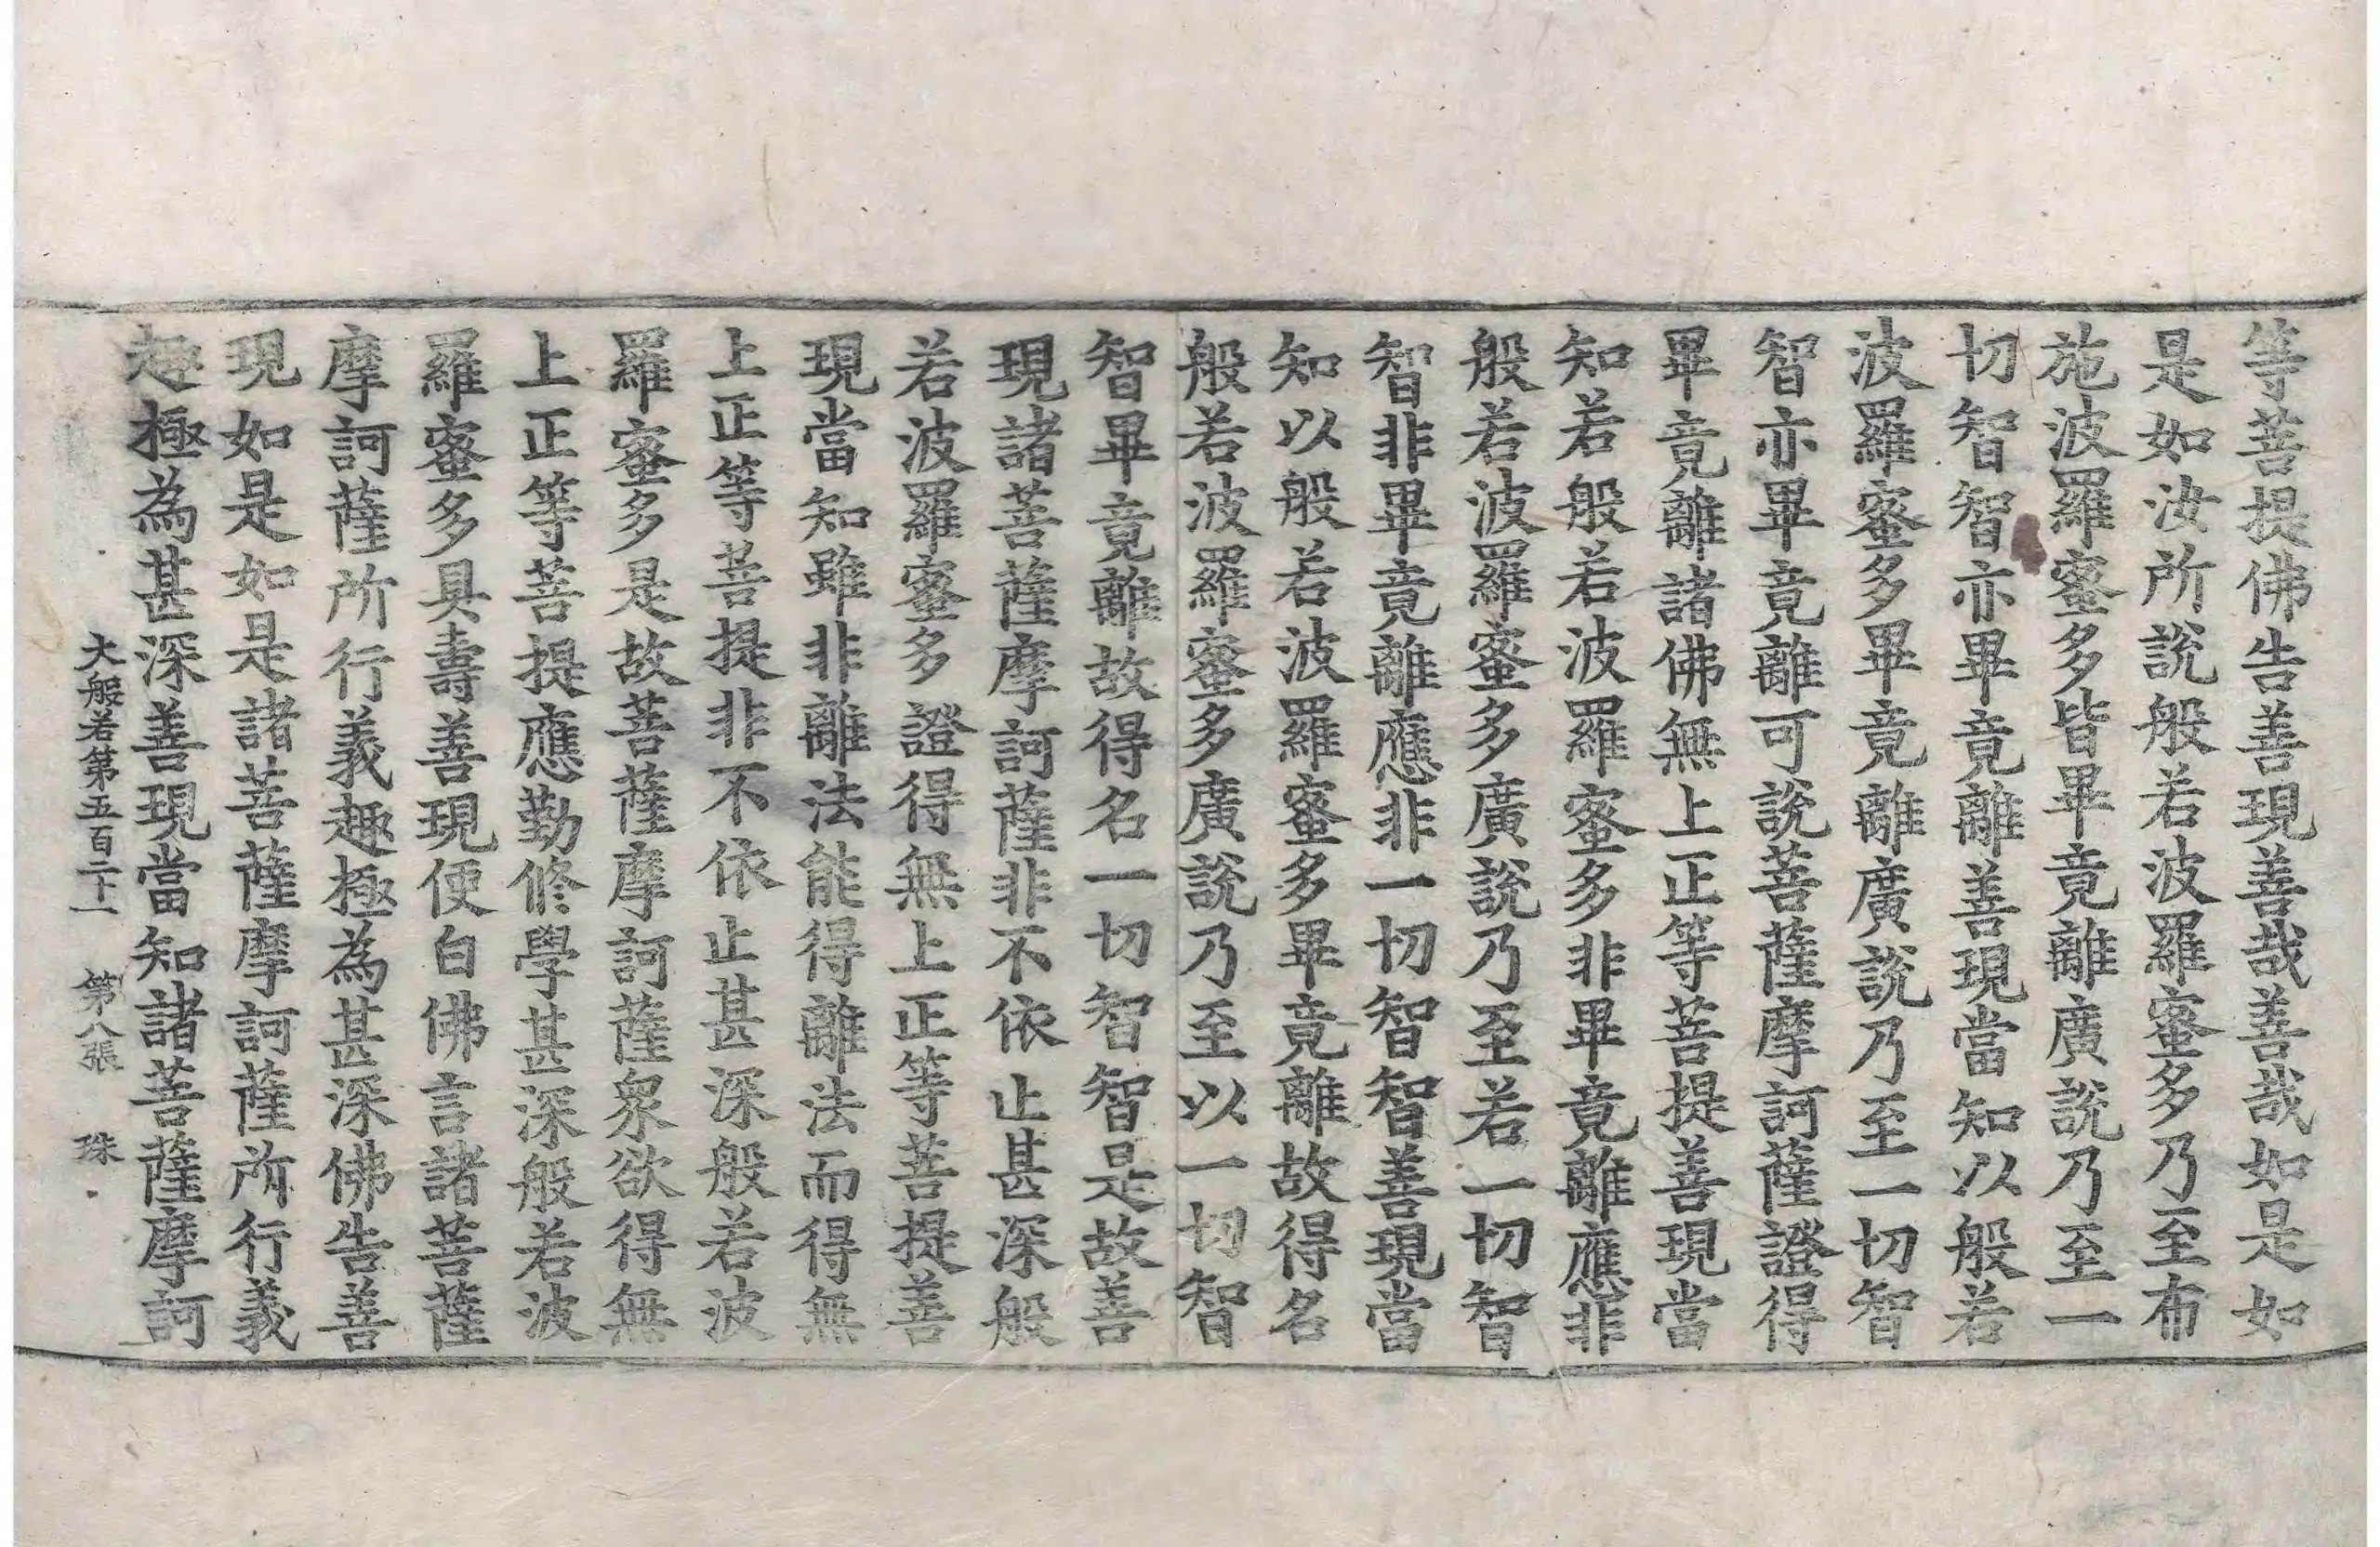 等菩提佛告善現善哉善哉如是如
是如汝所說般若波羅蜜多乃至布
施波羅蜜多皆畢竟離廣說乃至一
切智智亦畢竟離善現當知以般若
波羅蜜多畢竟離廣說乃至一切智
智亦畢竟離可說菩薩摩訶薩證得
畢竟離諸佛無上正等菩提善現當
知若般若波羅蜜多非畢竟離應非
般若波羅蜜多廣說乃至若一切智
智非畢竟離應非一切智智善現當
知以般若波羅蜜多畢竟離故得名
般若波羅蜜多廣說乃至以一切智
智畢竟離故得名一切智智是故善
現諸菩薩摩訶薩非不依止甚深般
若波羅蜜多證得無上正等菩提善
現當知雖非離法能得離法而得無
上正等菩提非不依止甚深般若波
羅蜜多是故菩薩摩訶薩眾欲得無
上正等菩提應勤修學甚深般若波
羅蜜多具壽善現便白佛言諸菩薩
摩訶薩所行義趣極為甚深佛告善
現如是如是諸菩薩摩訶薩所行義
趣極為甚深善現當知諸菩薩摩訶
大般若第五百二十一 第八張 珠